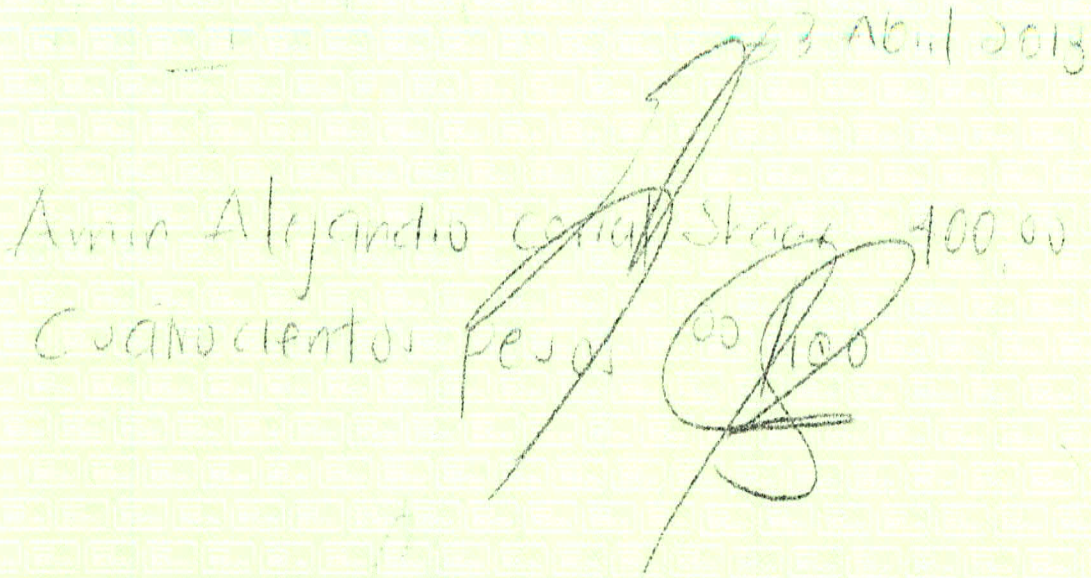 23 Abril 2018
Amin Alejandro 400.00
Cuatrocientos Pesos 00/100